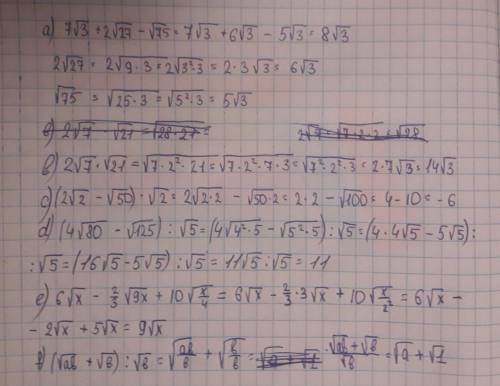 a) 7√3 + 2√27 − √75 = 7√3 + 6√3 − 5√3 = 8√3
2√27 = 2√9·3 = 2√3²·3 = 2·3√3 = 6√3
√75 = √25·3 = √5²·3 = 5√3
в) 2√7 − √21 = √28·21 = 2√7 = √7·2·2 = √28
b) 2√7 · √21 = √7·2²·21 = √7·2²·7·3 = √7²·2²·3 = 2·7√3 = 14√3
c) (2√2 − √50)·√2 = 2√2·2 − √50·2 = 2·2 − √100 = 4 − 10 = −6
d) (4√80 − √125) : √5 = (4√4²·5 − √5²·5) : √5 = (4·4√5 − 5√5) :
: √5 = (16√5 − 5√5) : √5 = 11√5 : √5 = 11
e) 6√x − 2/3√9x + 10√x/4 = 6√x − 2/3·3√x + 10√x/2² = 6√x −
− 2√x + 5√x = 9√x
f) (√ab + √b) : √b = √ab/b + √b/b = √a + √1 · √ab + √b/√b = √a + √1